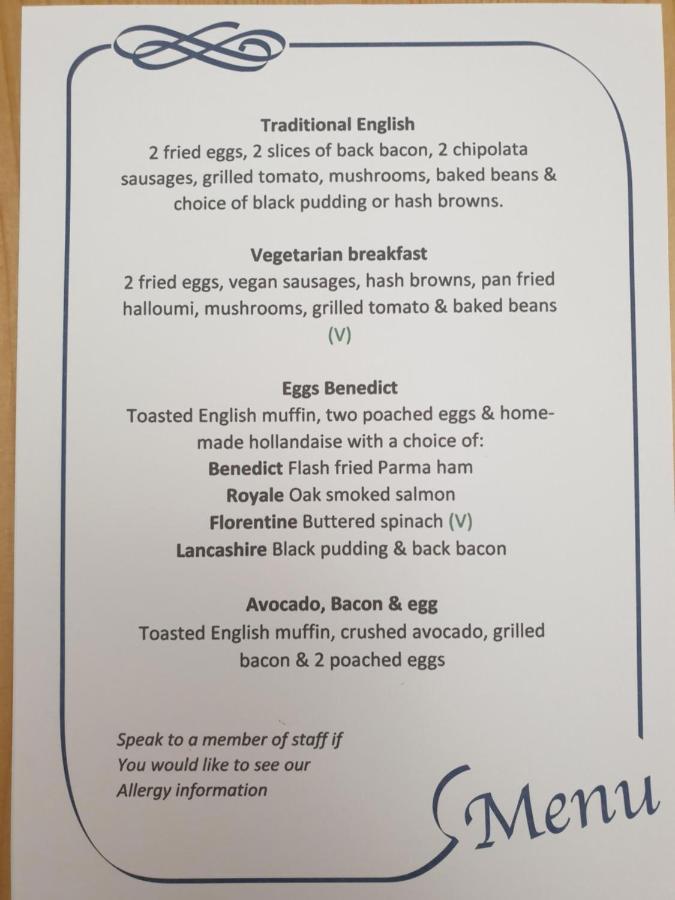 Traditional English
2 fried eggs, 2 slices of back bacon, 2 chipolata
sausages, grilled tomato, mushrooms, baked beans &
choice of black pudding or hash browns.
Vegetarian breakfast
2 fried eggs, vegan sausages, hash browns, pan fried
halloumi, mushrooms, grilled tomato & baked beans
(V)
Eggs Benedict
Toasted English muffin, two poached eggs & home-
made hollandaise with a choice of:
Benedict Flash fried Parma ham
Royale Oak smoked salmon
Florentine Buttered spinach (V)
Lancashire Black pudding & back bacon
Avocado, Bacon & egg
Toasted English muffin, crushed avocado, grilled
bacon & 2 poached eggs
Speak to a member of staff if
You would like to see our
Allergy information
Menu